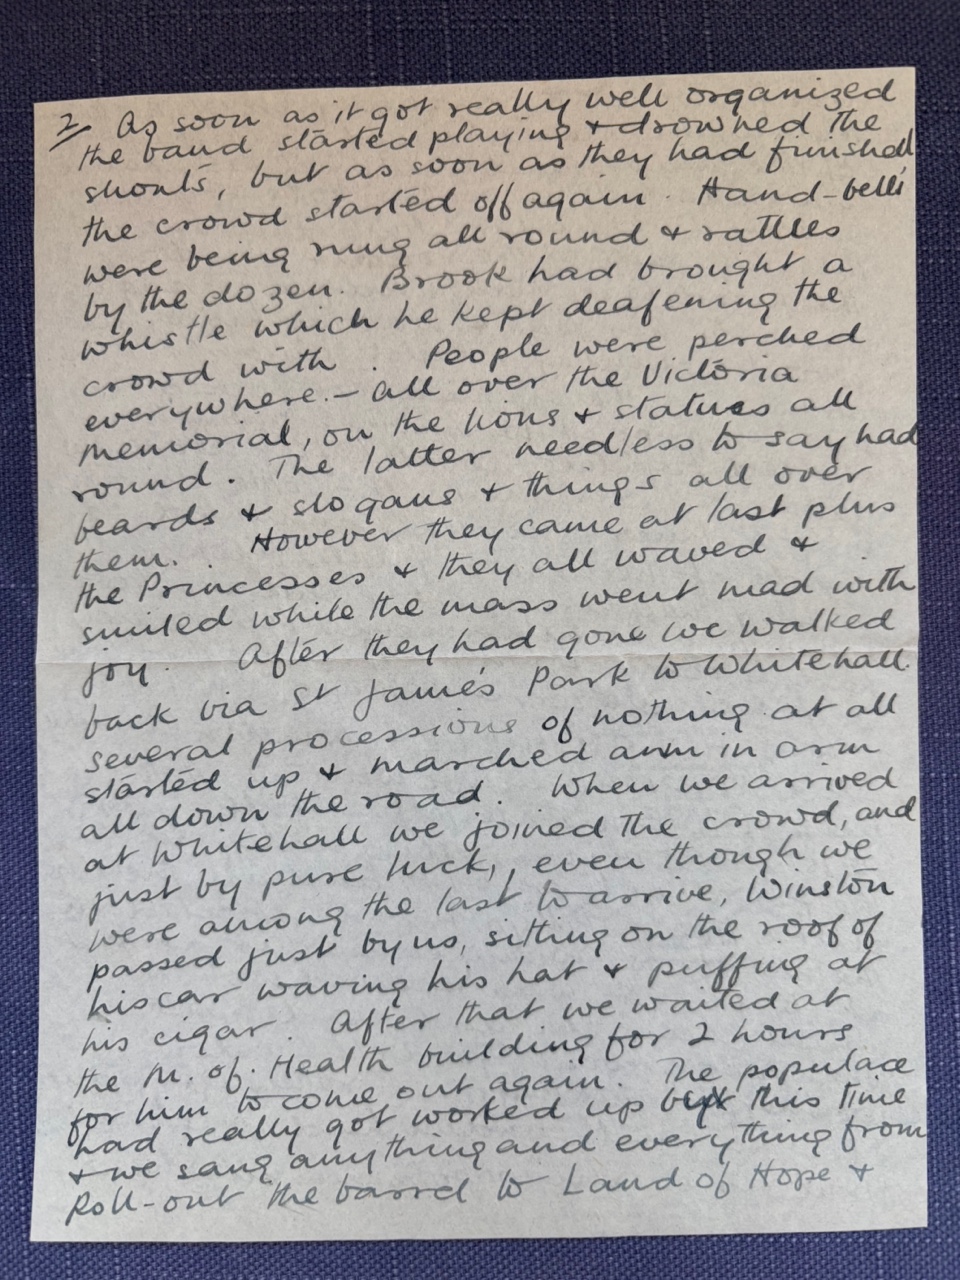 2/ As soon as it got really well organized
the band started playing & drowned the
shouts, but as soon as they had finished
the crowd started off again. Hand-bells
were being rung all round & rattles
by the dozen. Brook had brought a
whistle which he kept deafening the
crowd with. People were perched
everywhere. – all over the Victoria
Memorial, on the lions & statues all
round. The latter needless to say had
beards & slogans & things all over
them. However they came at last plus
the Princesses & they all waved &
smiled while the mass went mad with
joy. After they had gone we walked
back via St James Park to Whitehall.
several processions of nothing at all
started up & marched arm in arm
all down the road. When we arrived
at Whitehall we joined the crowd, and
just by pure luck, even though we
were among the last to arrive, Winston
passed just by us, sitting on the roof of
his car waving his hat & puffing at
his cigar. After that we waited at
the M. of. Health building for 2 hours
for him to come out again. The populace
had really got worked up by this time
& we sang anything and everything from
Roll-out the barrel to Land of Hope &